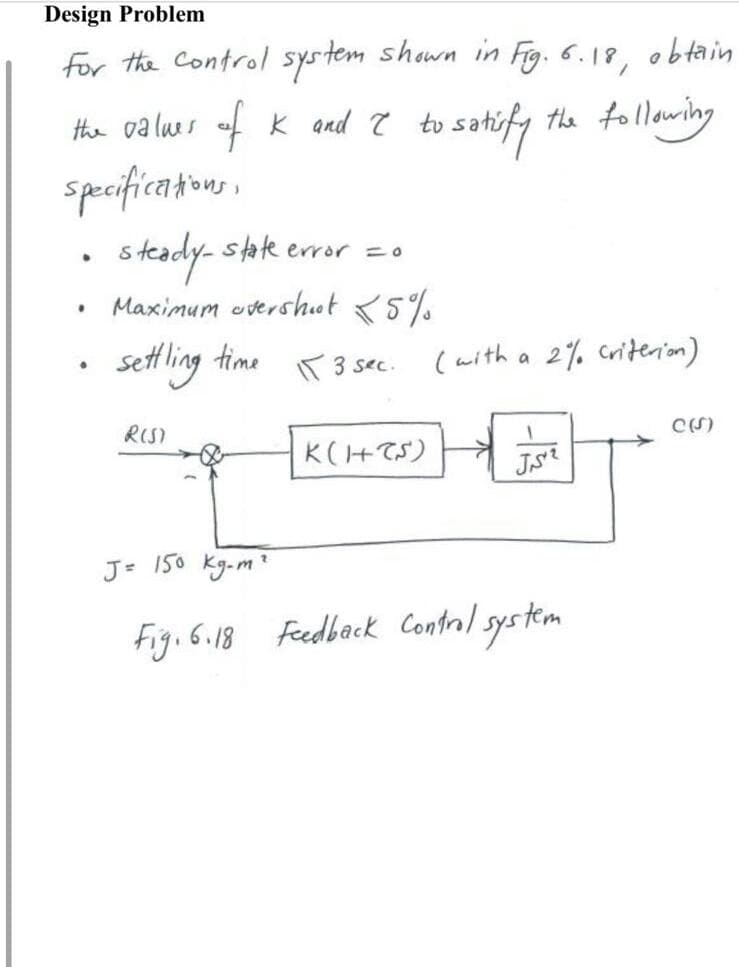 Design Problem
For the Control system shown in Fig. 6.18, obtain
the values of K and τ to satisfy the following
specifications,
• steady-state error = 0
• Maximum overshoot ≤ 5%
• settling time ≤ 3 sec. (with a 2% criterion)
R(S)
K(1+τS)
1
JS²
C(S)
-
J = 150 Kg-m²
Fig. 6.18 Feedback Control system